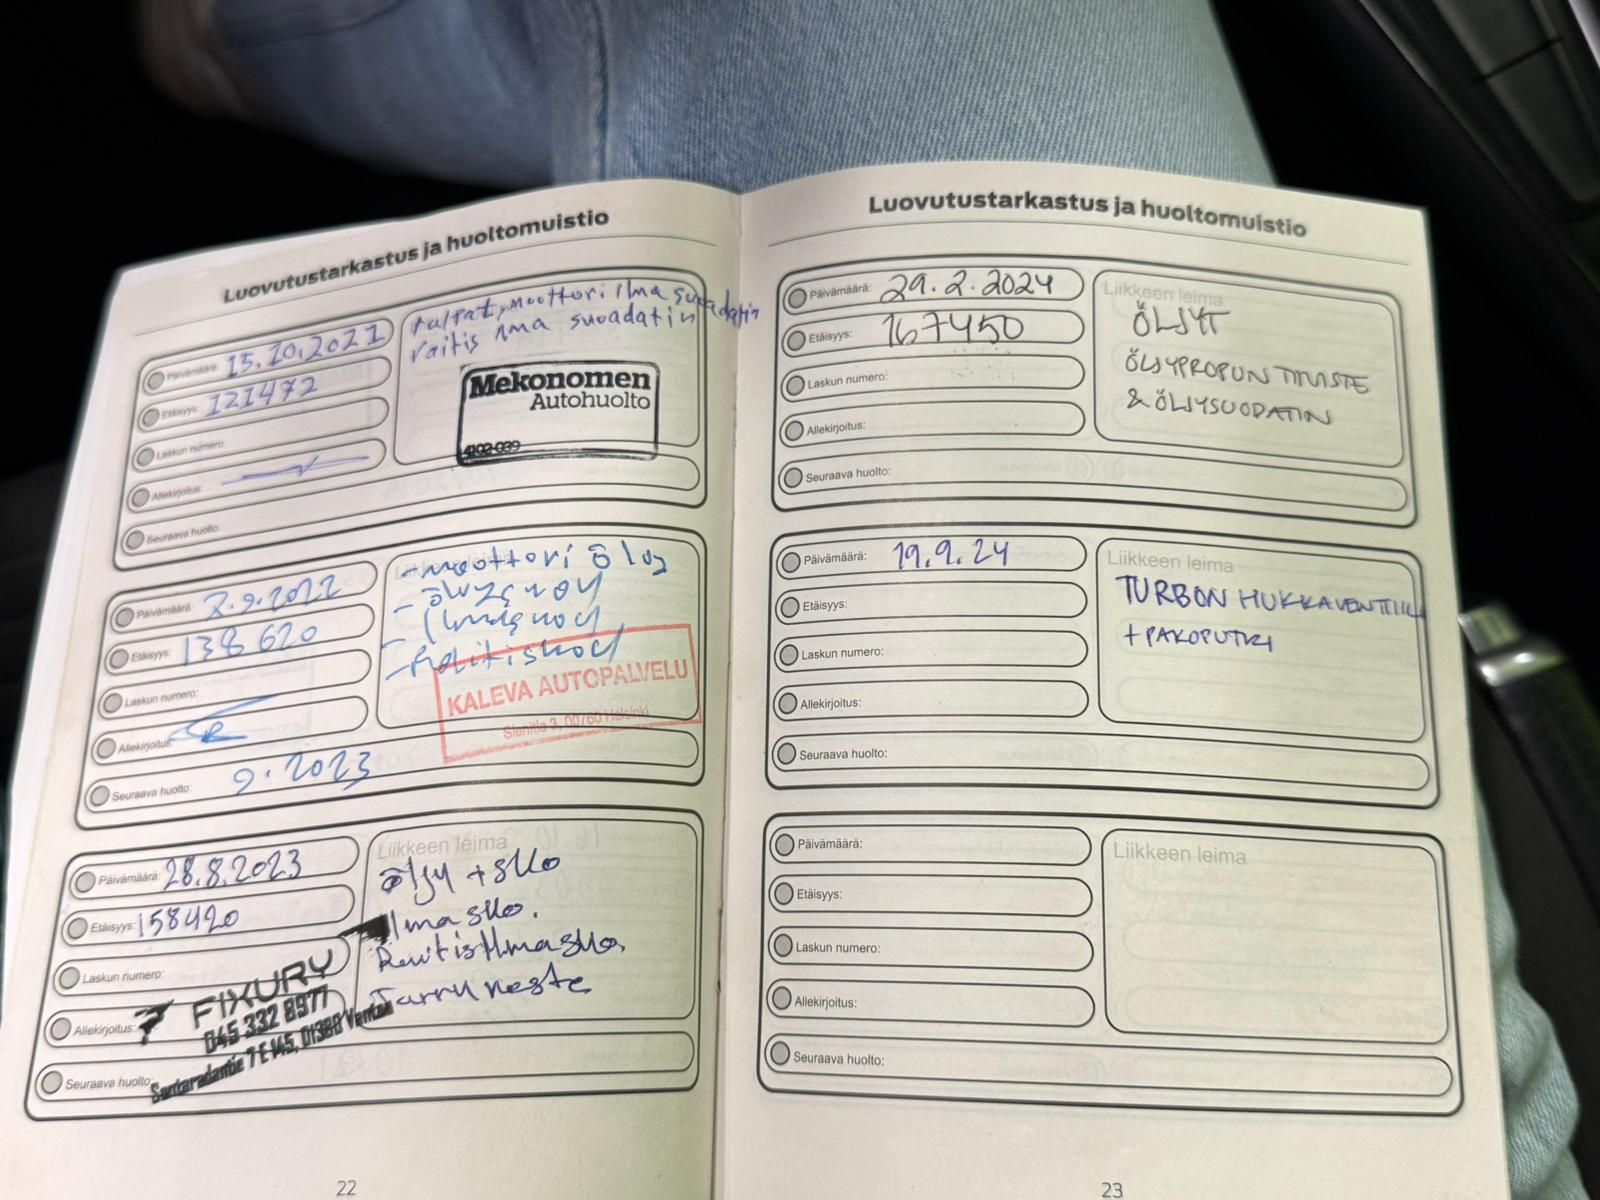 Luovutustarkastus ja huoltomuistio
Päivämäärä: 15.10.2021
Etäisyys: 121472
Laskun numero:
Allekirjoitus:
Seuraava huolto:
moottori ilma suodatin
raitis ilma suodatin
Mekonomen
Autohuolto
4102-039
Päivämäärä: 9.2022
Etäisyys: 138620
Laskun numero:
Allekirjoitus:
Seuraava huolto: 9.2023
Liikkeen leima
- moottori öljy
KALEVA AUTOPALVELU
Sienitie 3, 00760 Helsinki
Päivämäärä: 28.8.2023
Etäisyys: 158420
Laskun numero:
Allekirjoitus:
Seuraava huolto:
Liikkeen leima
öljy + sko
Ilmasko.
Raitisilmasko,
Jarruneste
FIXURY
045 332 8977
Santaradantie 7 E 145, 01380 Vantaa
22
Luovutustarkastus ja huoltomuistio
Päivämäärä: 29.2.2024
Etäisyys: 167450
Laskun numero:
Allekirjoitus:
Seuraava huolto:
Liikkeen leima
ÖLJYT
ÖLJYPROPUN TIIVISTE
& ÖLJYSUODATIN
Päivämäärä: 19.9.24
Etäisyys:
Laskun numero:
Allekirjoitus:
Seuraava huolto:
Liikkeen leima
TURBON HUKKAVENTTIILI
+ PAKOPUTKI
Päivämäärä:
Etäisyys:
Laskun numero:
Allekirjoitus:
Seuraava huolto:
Liikkeen leima
23